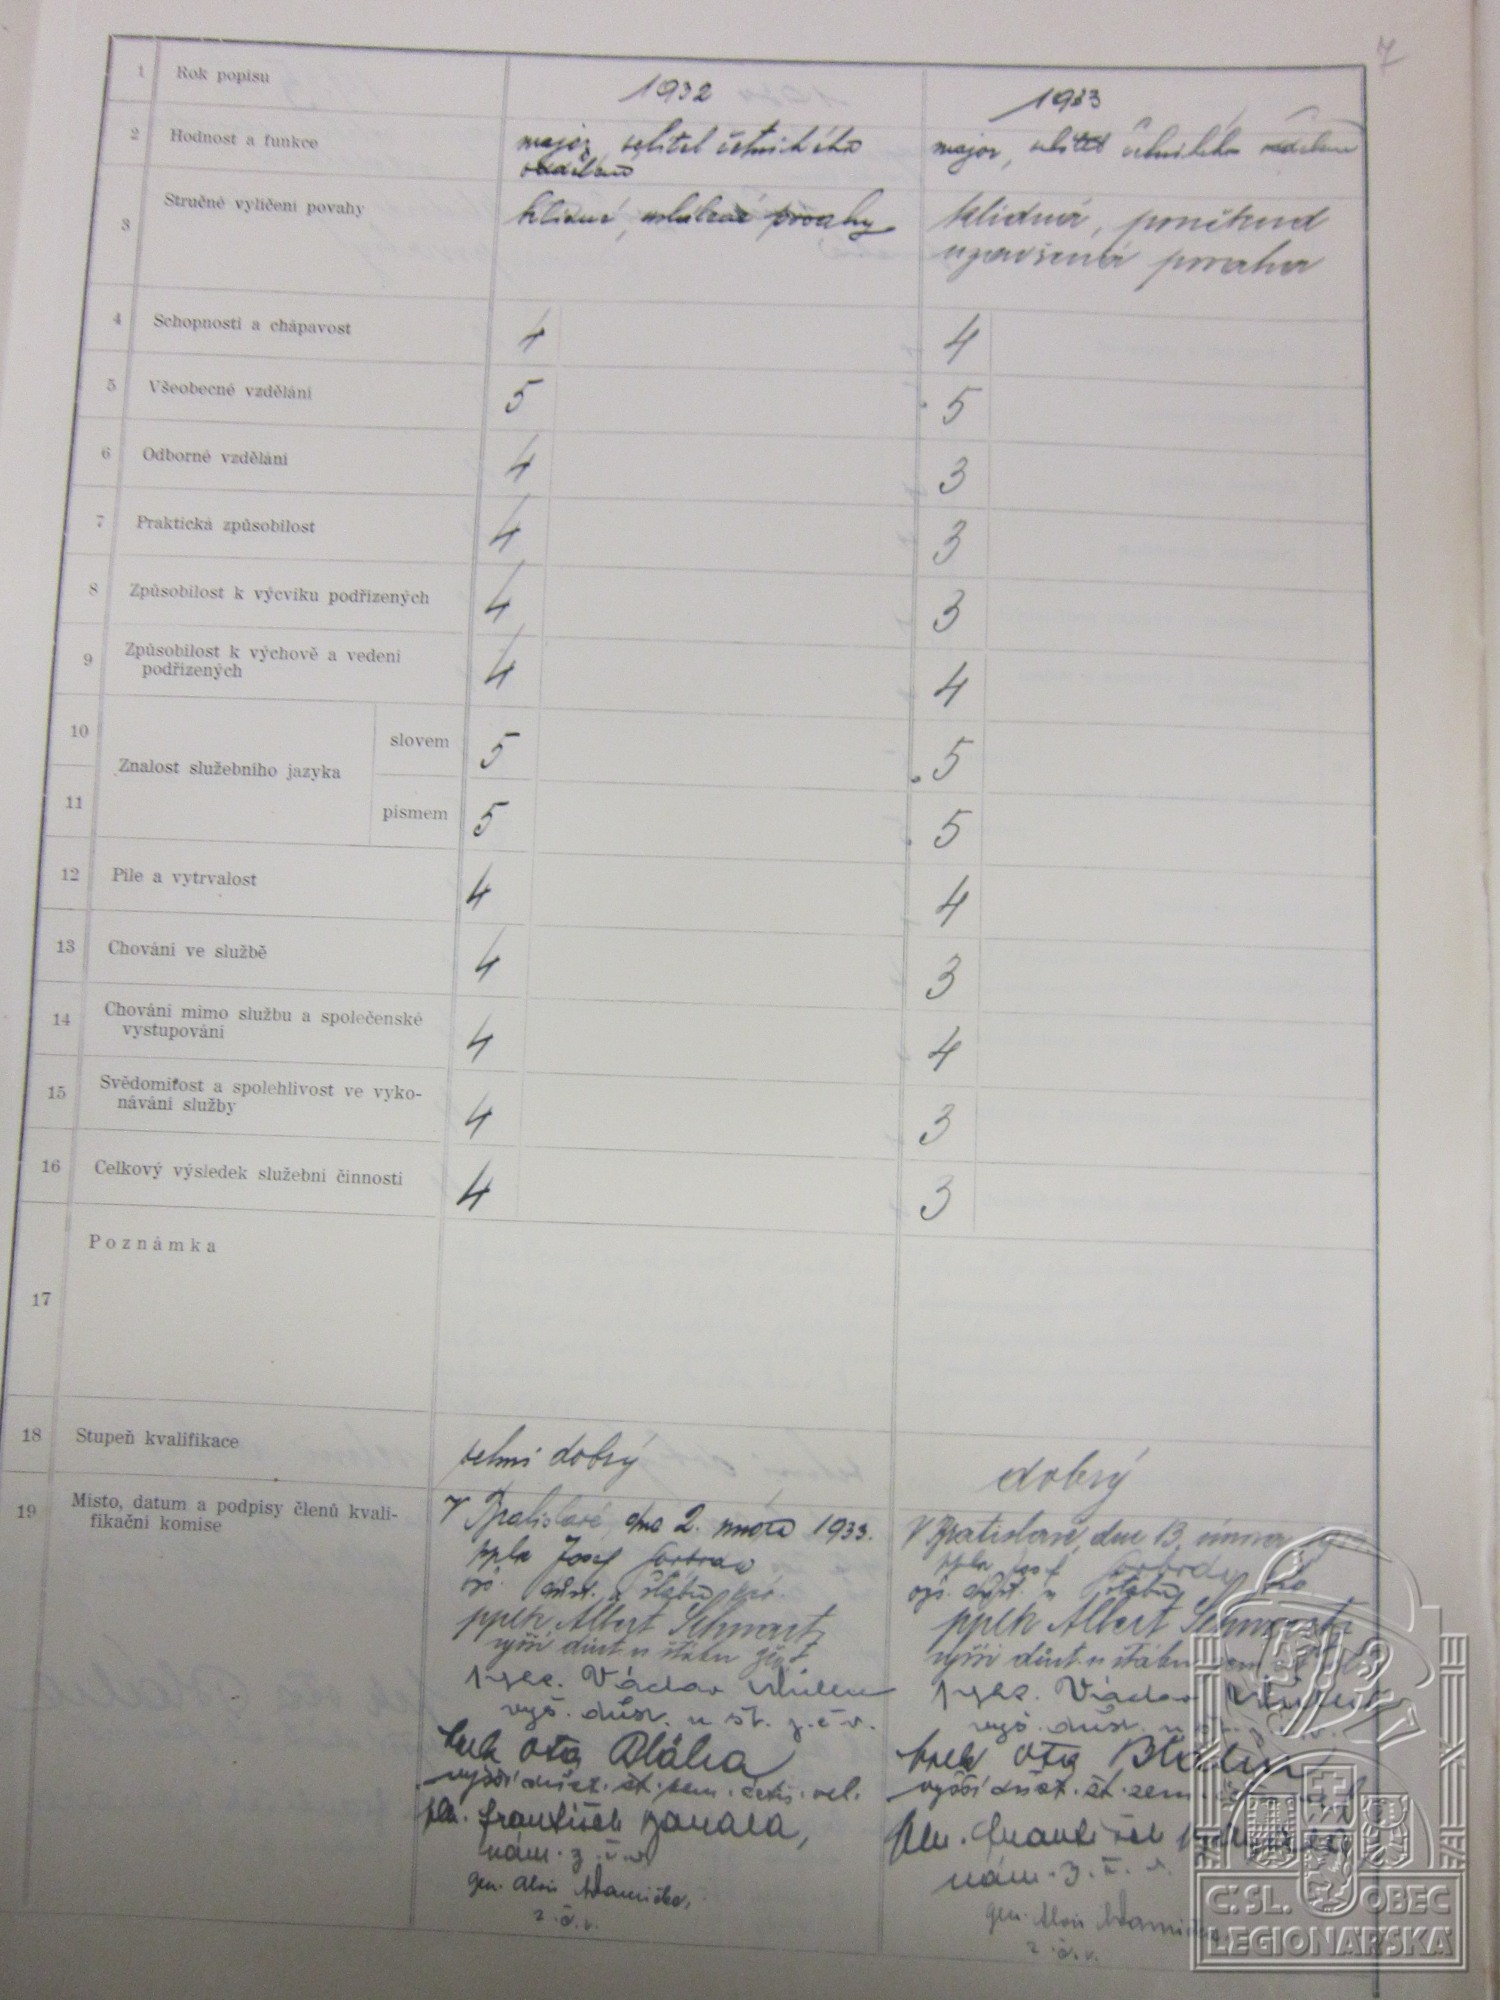 7
1 Rok popisu 1932 1933
2 Hodnost a funkce major, velitel četnického oddělení major, velitel četnického oddělení
3 Stručné vylíčení povahy klidné, povahy klidná, poněkud
uzavřená povaha
4 Schopnosti a chápavost 4 4
5 Všeobecné vzdělání 5 5
6 Odborné vzdělání 4 3
7 Praktická způsobilost 4 3
8 Způsobilost k výcviku podřízených 4 3
9 Způsobilost k výchově a vedení
podřízených 4 4
10 Znalost služebního jazyka slovem 5 5
11 písmem 5 5
12 Píle a vytrvalost 4 4
13 Chování ve službě 4 3
14 Chování mimo službu a společenské
vystupování 4 4
15 Svědomitost a spolehlivost ve vyko-
návání služby 4 3
16 Celkový výsledek služební činnosti 4 3
17 Poznámka
18 Stupeň kvalifikace velmi dobrý dobrý
19 Místo, datum a podpisy členů kvali-
fikační komise
V Bratislavě, dne 2. února 1933.
Josef
pplk Albert Schwartz
vyšší důst. u štábu
Václav
vyš. důst. u št. z. č. v.
Ota Bláha
vyšší důst. št. zem. četn. vel.
plk. František
nám. z. č. v.
gen. Alois
z. č. v.
V Bratislavě, dne 13. února
Josef
pplk Albert Schwartz
vyšší důst. u štábu
Václav
vyš. důst. u št.
Ota Bláha
vyšší důst. št. zem.
plk. František
nám. z. č. v.
gen. Alois
z. č. v.
ČSL. OBEC
LEGIONÁŘSKÁ